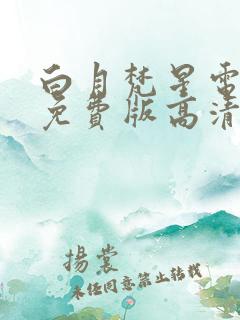 白月梵星電
免費版高清
揚裳
未经同意禁止转载